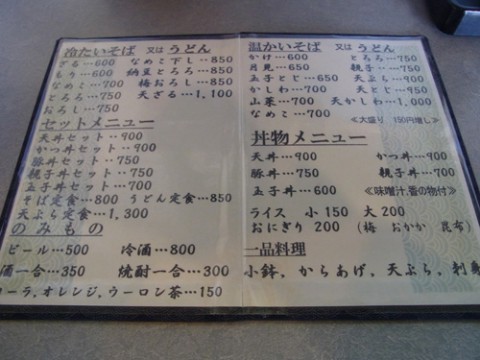 冷たいそば 又は うどん
ざる…600 なめこ下し…850
もり…600 納豆とろろ…850
なめこ…700 梅おろし…850
とろろ…750 天ざる…1,100
おろし…750
セットメニュー
天丼セット…900
かつ丼セット…900
豚丼セット…750
親子丼セット…750
玉子丼セット…700
そば定食…800 うどん定食…850
天ぷら定食…1,300
のみもの
ビール…500 冷酒…800
酒一合…350 焼酎一合…300
コーラ,オレンジ,ウーロン茶…150
温かいそば 又は うどん
かけ…600 とろろ…750
月見…650 親子…750
玉子とじ…650 天ぷら…900
かしわ…700 天とじ…950
山菜…700 天かしわ…1,000
なめこ…700
≪大盛り 150円増し≫
丼物メニュー
天丼…900 かつ丼…900
豚丼…750 親子丼…700
玉子丼…600 ≪味噌汁,香の物付≫
ライス 小150 大200
おにぎり 200 (梅 おかか 昆布)
一品料理
小鉢,からあげ,天ぷら,刺身